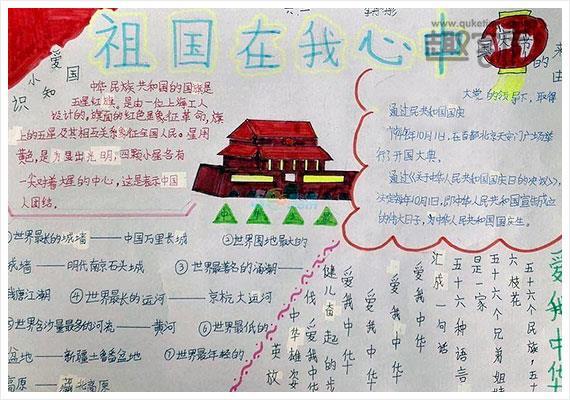 www.quketi
祖国在我心中
爱国
小知识
中华民族共和国的国旗是
五星红旗。是由一位上海工人
设计的，旗面的红色是象征革命，旗
上的五星及其相互关系象征全国人民。星用
黄色，是为显出光明，四颗小星各有
一尖对着大星的中心，这是表示中国
人团结。
国庆节的来
的领导下，取得
通过民共和国国庆
1949年10月1日，在首都北京天安门广场举
行了开国大典。
通过《关于中华人民共和国国庆日的决议》，
决定每年10月1日，即中华人民共和国宣告成立
的伟大日子，为中华人民共和国国庆生。
①世界最长的城墙——中国万里长城
②世界围地最大的
城墙——明代南京石头城
③世界最著名的涌潮——
钱塘江潮
④世界最长的运河——京杭大运河
⑤世界含沙量最多的河流——黄河
⑥世界最低的
盆地——新疆吐鲁番盆地
⑦世界最年轻的
高原——藏北高原
爱我中华
五十六个民族，五十
六枝花
五十六个兄弟姐妹
是一家
五十六种语言
汇成一句话
爱我中华
爱我中华
爱我中华
健儿奋起的步
伐
爱我中华
中华雄姿
英放